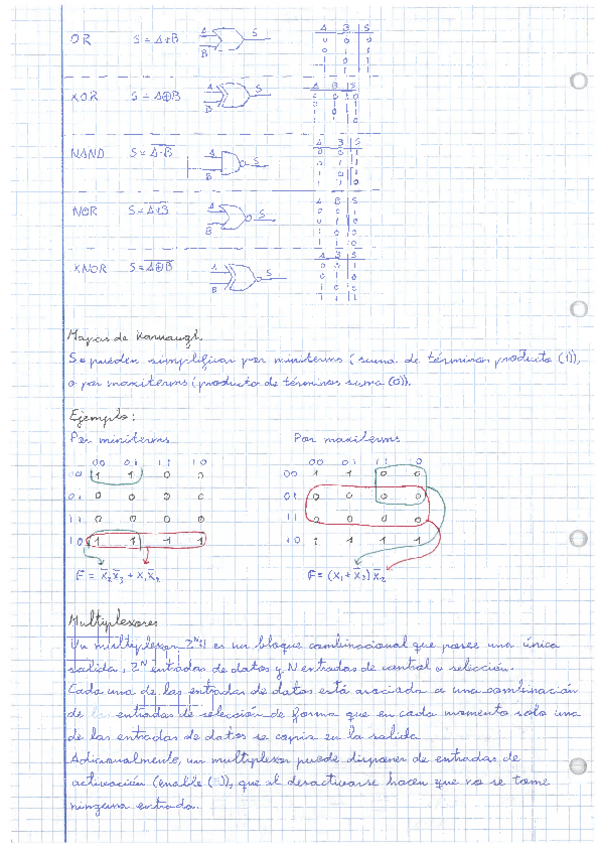 OR S = A+B A B S A B S
XOR S = A⊕B A B S A B S
NAND S = \overline{A·B} A B S A B S
NOR S = \overline{A+B} A B S A B S
XNOR S = \overline{A⊕B} A B S A B S
Mapas de Karnaugh.
Se pueden simplificar por miniterms (suma de términos producto (1)),
o por maxiterms (producto de términos suma (0)).
Ejemplo:
Por miniterms Por maxiterms
00 01 11 10 00 01 11 10
00 1 1 0 0 00 1 1 0 0
01 0 0 0 0 01 0 0 0 0
11 0 0 0 0 11 0 0 0 0
10 1 1 1 1 10 1 1 1 1
F = x̄₂x̄₃ + x₁x̄₂ F = (x₁ + x̄₃) x̄₂
Multiplexores
Un multiplexor 2ᴺ:1 es un bloque combinacional que posee una única
salida, 2ᴺ entradas de datos y N entradas de control o selección.
Cada una de las entradas de datos está asociada a una combinación
de las entradas de selección de forma que en cada momento solo una
de las entradas de datos se copia en la salida
Adicionalmente, un multiplexor puede disponer de entradas de
activación (enable), que al desactivarse hacen que no se tome
ninguna entrada.